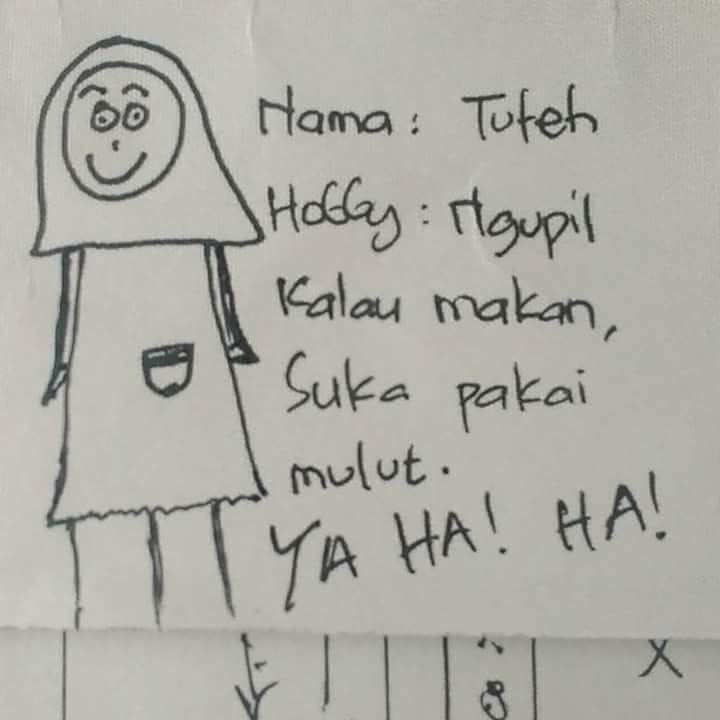 Nama : Tuteh
Hobby : Ngupil
Kalau makan,
Suka pakai
mulut.
YA HA! HA!
X